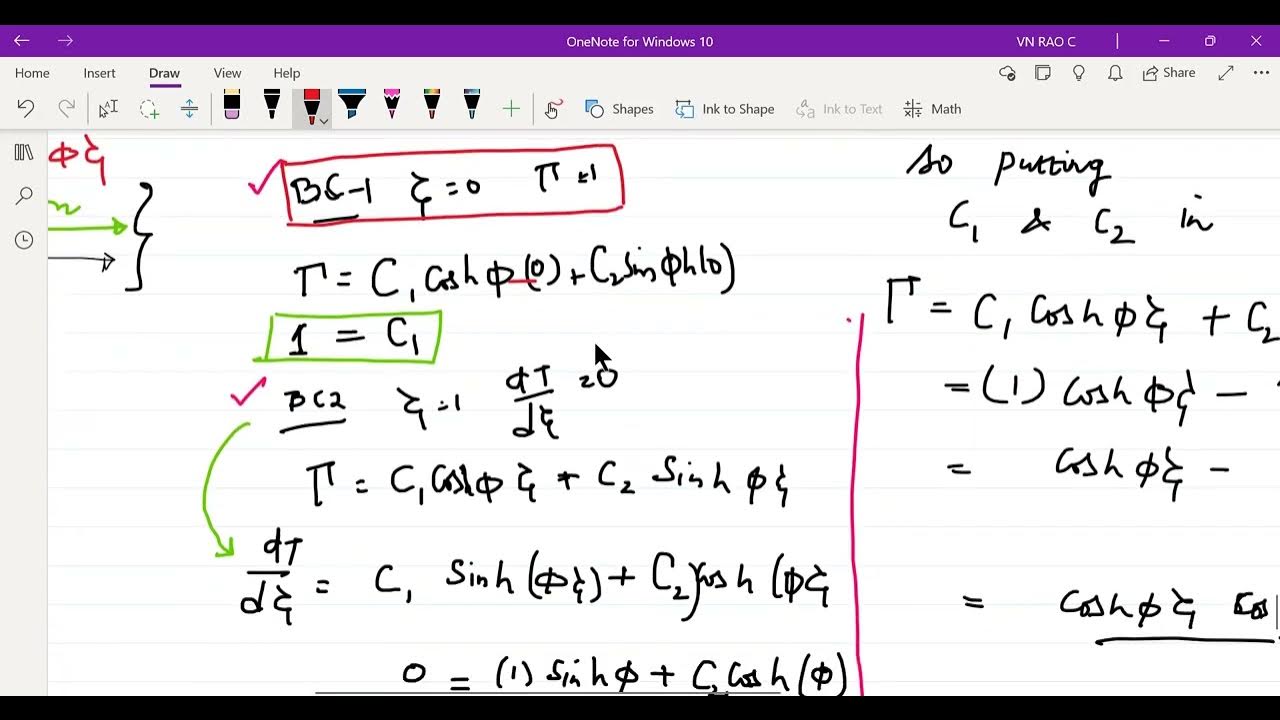 OneNote for Windows 10
VN RAO C
Home Insert Draw View Help
Share
Shapes Ink to Shape Ink to Text Math
φξ
BC-1 ξ = 0 Γ = 1
Γ = C₁ Cosh φ (0) + C₂ Sin φh(0)
1 = C₁
BC2 ξ = 1 dT/dξ = 0
Γ = C₁ Cosh φ ξ + C₂ Sinh φξ
dT/dξ = C₁ Sinh (φξ) + C₂ Cosh (φξ
0 = (1) Sinh φ + C₂ Cosh (φ)
So putting
C₁ & C₂ in
Γ = C₁ Cosh φξ + C₂
= (1) Cosh φξ -
= Cosh φξ -
= Cosh φξ Cos